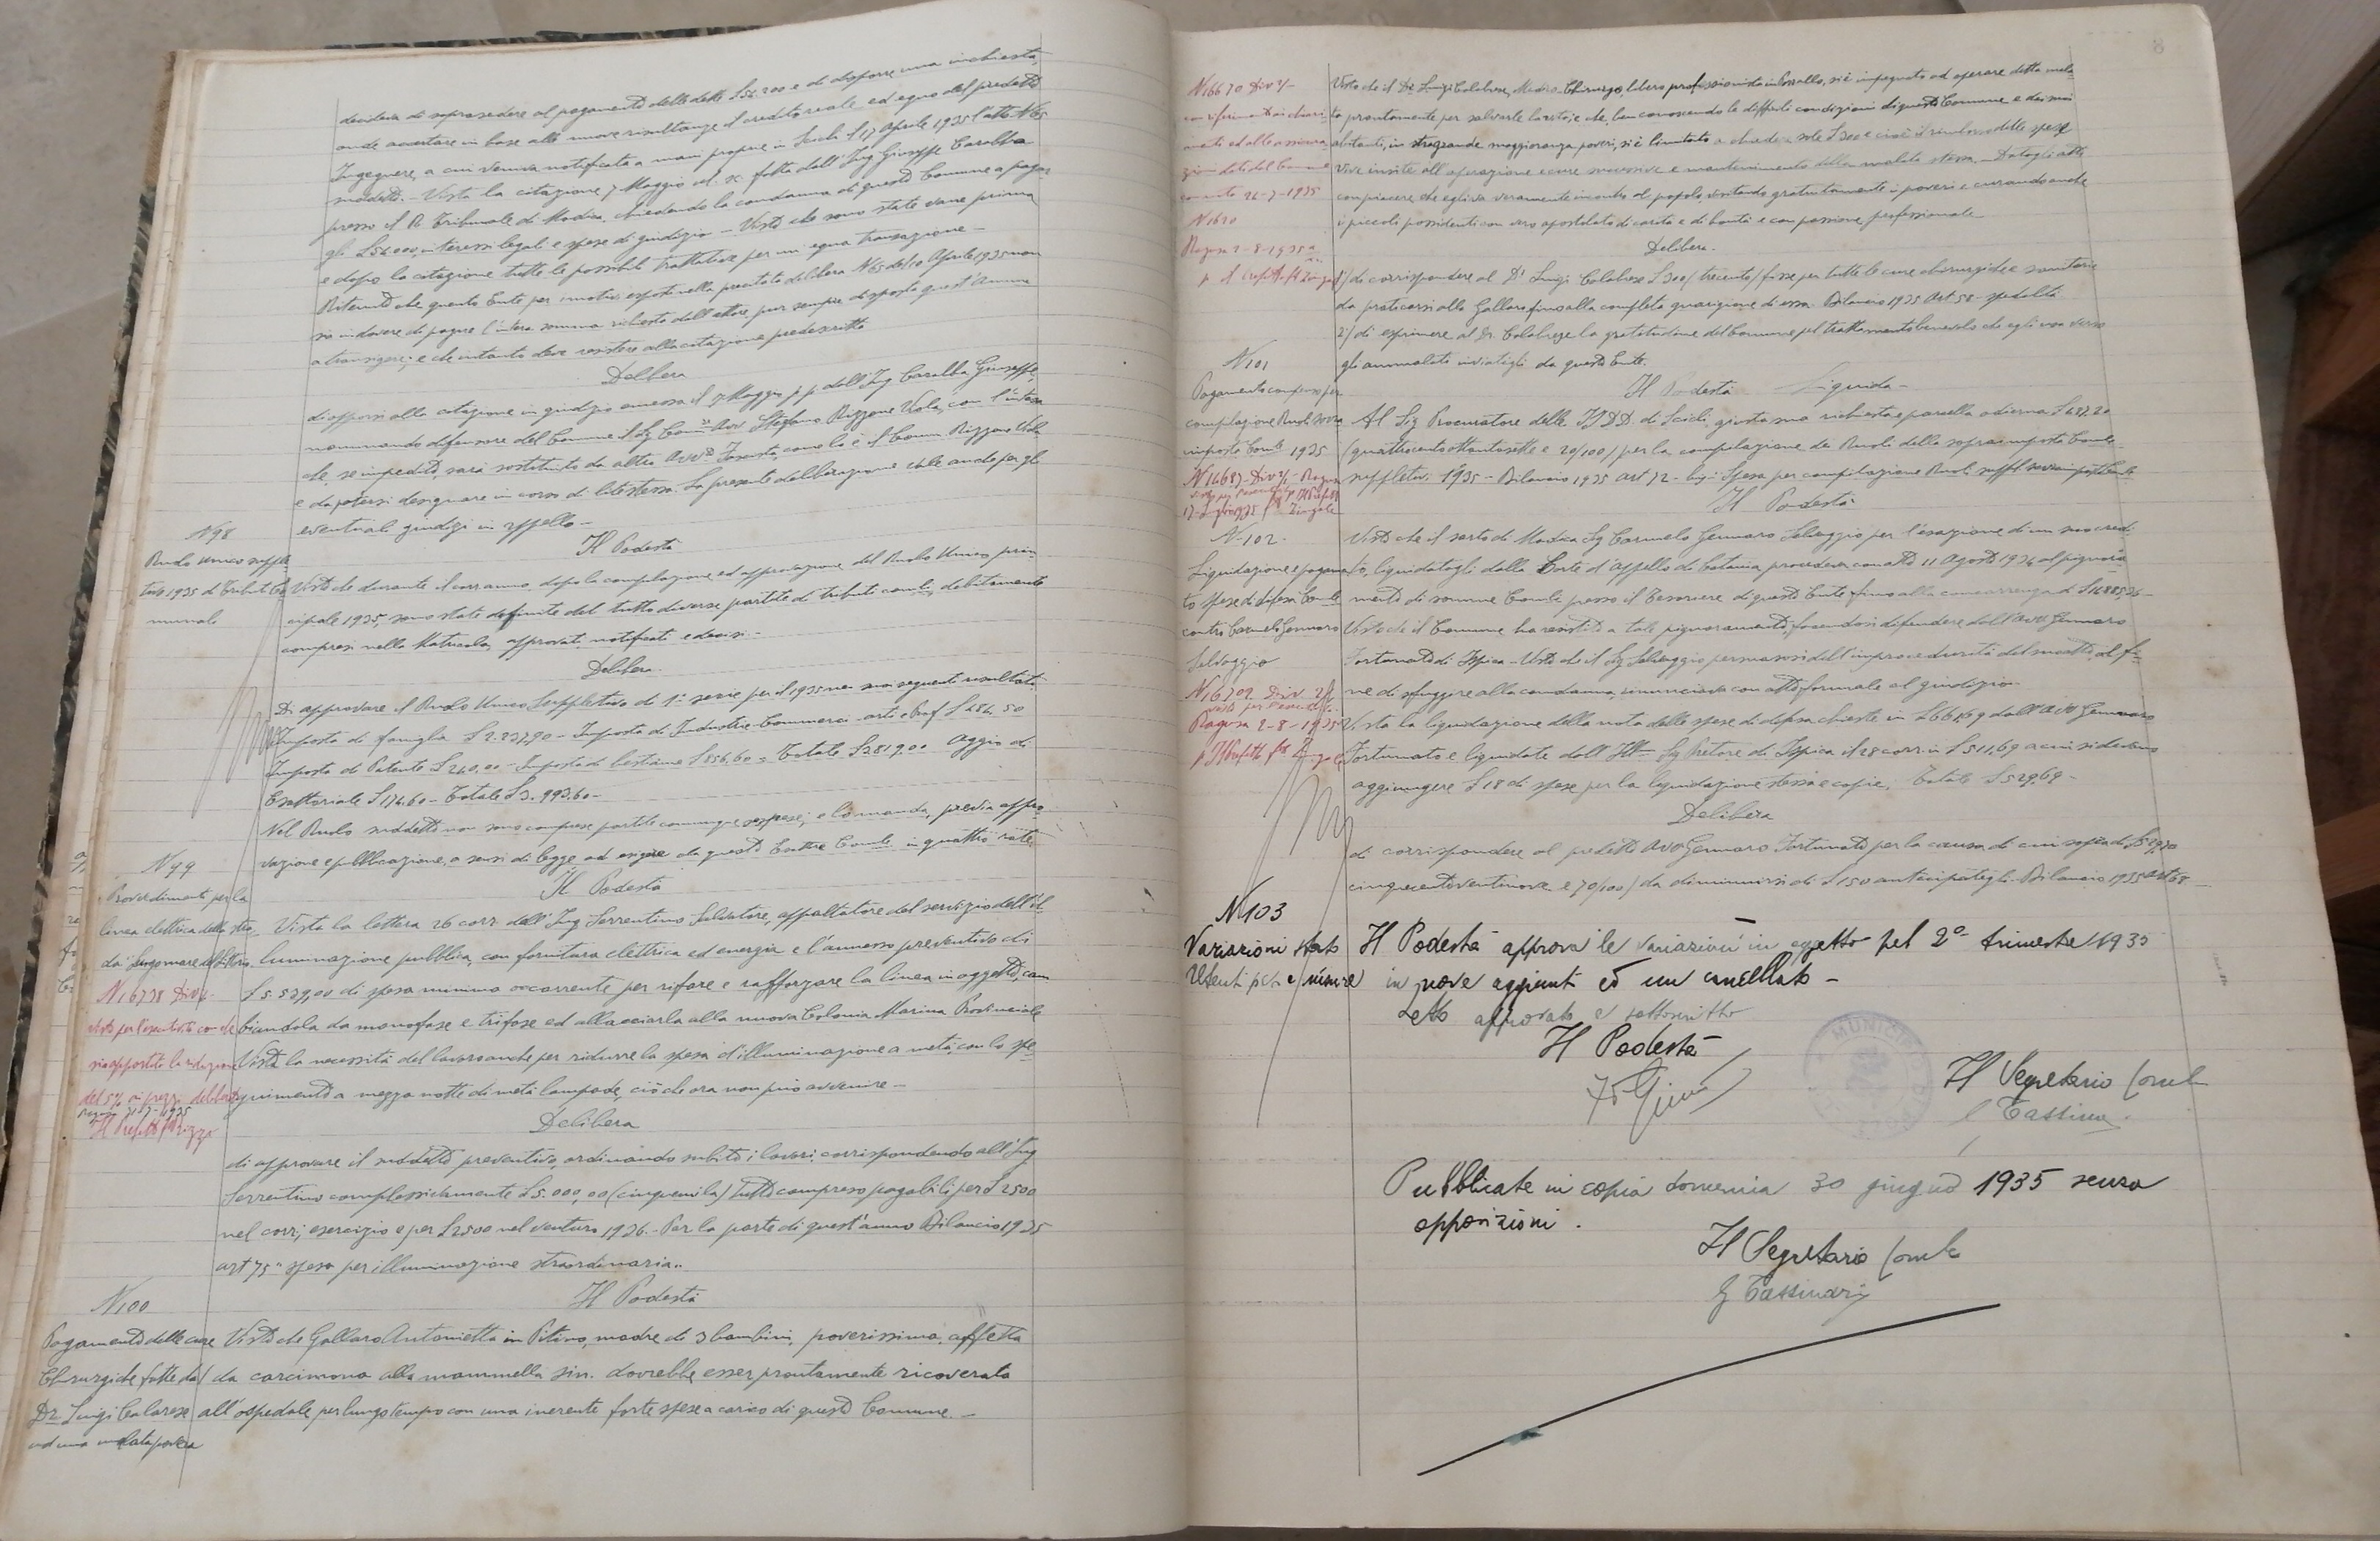 decideva di soprassedere al pagamento delle dette £ 54.200 e di disporre una inchiesta,
onde accertare in base alle nuove risultanze il credito reale ed equo del predetto
Ingegnere, a cui veniva notificata a mani proprie in Scicli il 17 Aprile 1935 l'atto N 65
suddetto. - Vista la citazione 7 Maggio fatta dall'Ing Giuseppe Carabba
presso il R Tribunale di Modica, chiedendo la condanna di questo Comune a pagar
gli £ 54000, interessi legali e spese di giudizio - Visto che sono state vane prima
e dopo la citazione tutte le possibili trattative per un equa transazione -
Ritenuto che questo Ente per i motivi esposti nella precitata delibera N 65 del 10 Aprile 1935 non
sia in dovere di pagare l'intera somma richiesta dall'attore, pur sempre disposta quest'Amm
a transigere; e che intanto deve resistere alla citazione predescritta
Delibera
di opporsi alla citazione in giudizio emessa il 7 Maggio p.p. dall'Ing Carabba Giuseppe,
nominando difensore del Comune il Sig Comm Avv Stefano Rizzone Viola, con l'intesa
che, se impedito, sarà sostituito da altro Avv.to come lo è il Comm Rizzone Viola
e da potersi designare in corso di lite stessa. La presente deliberazione vale anche per gli
eventuali giudizi in appello -
N 98
Ruolo Unico supple
tivo 1935 di Tributi Co
munali
Il Podestà
Visto che durante il corr anno, dopo la compilazione ed approvazione del Ruolo Unico prin
cipale 1935, sono state definite del tutto diverse partite di tributi comli, debitamente
compresi nella Matricola, approvati, notificati e decisi -
Delibera
Di approvare il Ruolo Unico Suppletivo di 1ª serie pel 1935 nei suoi seguenti risultati
Imposta di famiglia £ 2.237,90 - Imposta di Industrie Commerci - arti e Prof £ 484,50
Imposta di Patente £ 240,00 - Imposta di bestiame £ 856,60 = Totale £ 3819,00 Aggio di
Esattoriale £ 174,60 - Totale £ 3.993,60 -
Nel Ruolo suddetto non sono comprese partite comunque sospese; e lo manda, previa appro
vazione e pubblicazione, a sensi di legge ad esigere da questo Esattore Comle in quattro rate
N 99
Provvedimenti per la
linea elettrica della stra
da lungomare del Littorio.
N 16738 Div 4-
Visto per l'esecutività con che
sia apportata la riduzione
del 5% ai prezzi
Il Prefetto
Il Podestà
Vista la lettera 26 corr dell'Ing Sorrentino Salvatore, appaltatore del servizio dell'il-
luminazione pubblica, con fornitura elettrica ed energia e l'annesso preventivo di
£ 5.529,00 di spesa minima occorrente per rifare e rafforzare la linea in oggetto, cam
biandola da monofase e trifase ed allacciarla alla nuova Colonia Marina Provinciale
Vista la necessità del lavoro anche per ridurre la spesa d'illuminazione a metà, con lo spe-
gnimento a mezza notte di metà lampade, ciò che ora non può avvenire -
Delibera
di approvare il suddetto preventivo, ordinando subito i lavori, corrispondendo all'Ing
Sorrentino complessivamente £ 5.000,00 (cinquemila) tutto compreso pagabili per £ 2500
nel corr. esercizio e per £ 2500 nel venturo 1936.- Per la parte di quest'anno Bilancio 1935
art 75 "spesa per illuminazione straordinaria"
N 100
Pagamento delle cure
Chirurgiche fatte dal
Dr. Luigi Calabrese
ad una malata povera
Il Podestà
Visto che Gallaro Antonietta in Pitino, madre di 3 bambini, poverissima, affetta
da carcinoma alla mammella sin. dovrebbe esser prontamente ricoverata
all'ospedale per lungo tempo con una inerente forte spesa a carico di questo Comune. -
8
N 16670 Div 4-
con riferimento ai chiari-
menti ed alle assicura
zioni date dal Comune
26-7-1935
N 1620
Ragusa 2-8-1935
p Il Prefetto
Visto che il Dr Luigi Calabrese, Medico-Chirurgo, libero professionista in Pozzallo, si è impegnato ad operare detta mala-
ta prontamente per salvarle la vita; e che, ben conoscendo le difficili condizioni di questo Comune e dei suoi
abitanti, in stragrande maggioranza poveri, si è limitato a chiedere sole £ 300 e cioè il rimborso delle spese
vive insite all'operazione e cure successive e mantenimento della malata stessa. - Datogli atto
con piacere che egli va veramente incontro al popolo, visitando gratuitamente i poveri e curando anche
i piccoli possidenti con vero apostolato di carità e di bontà e con passione professionale
Delibera.
1) di corrispondere al Dr Luigi Calabrese £ 300 (trecento) fisse per tutte le cure chirurgiche e sanitarie
da praticarsi alla Gallaro fino alla completa guarigione di essa. Bilancio 1935 Art 58 - spedalità
2) di esprimere al Dr Calabrese la gratitudine del Comune pel trattamento benevolo che egli usa verso
gli ammalati inviatigli da questo Ente.
N 101
Pagamento compenso per
compilazione Ruoli sovra
imposte Comli 1935
N 16687 Div 4- Ragusa
Il Podestà Liquida -
Al Sig Procuratore delle II.DD. di Scicli, giusta sua richiesta e parcella odierna £ 487,20
(quattrocento ottantasette e 20/100) per la compilazione dei Ruoli della sovraimposta Comle
suppletivi 1935 - Bilancio 1935 art 72 - Spesa per compilazione Ruoli
N-102.
Liquidazione e pagamen
to spese di difesa Comle
contro Carmelo Gennaro
Selvaggio
N 16702 Div 2/4
Ragusa 2-8-1935
Il Podestà
Visto che il sarto di Modica Sig Carmelo Gennaro Selvaggio per l'esazione di un suo credi
to, liquidatogli dalla Corte d'appello di Catania procedeva con atto 11 Agosto 1934 al pignora
mento di somme Comli presso il Tesoriere di questo Ente fino alla concorrenza di £ 14885,26 -
Visto che il Comune ha resistito a tale pignoramento, facendosi difendere dall'Avv Gennaro
Fortunato di Ispica - Visto che il Sig Selvaggio persuasosi dell'improcedurità del suo atto, al fi-
ne di sfuggire alla condanna, rinunciava con atto formale al giudizio -
Vista la liquidazione della nota delle spese di difesa chieste in £ 661,69 dall'Avv Gennaro
Fortunato e liquidate dall'Ill.mo Sig Pretore di Ispica il 28 corr. in £ 511,69 a cui si devono
aggiungere £ 18 di spese per la liquidazione stessa e copie, Totale £ 529,69 -
Delibera
di corrispondere al predetto Avv Gennaro Fortunato per la causa di cui sopra di £ 529,70
cinquecentoventinove e 70/100) da diminuirsi di £ 150 anticipategli. Bilancio 1935 art 68
N 103
Variazioni stato
Utenti pesi e misure
Il Podestà approva le variazioni in oggetto pel 2º trimestre 1935
in nove aggiunti ed un cancellato -
Letto approvato e sottoscritto
Il Podestà
MUNICIPIO
Il Segretario Comle
G Tassinari
Pubblicate in copia domenica 30 giugno 1935 senza
opposizioni.
Il Segretario Comle
G Tassinari